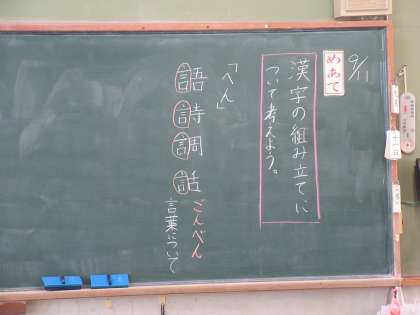 9/11
めあて
漢字の組み立てに
ついて考えよう。
「へん」
語詩調話
ごんべん
言葉について